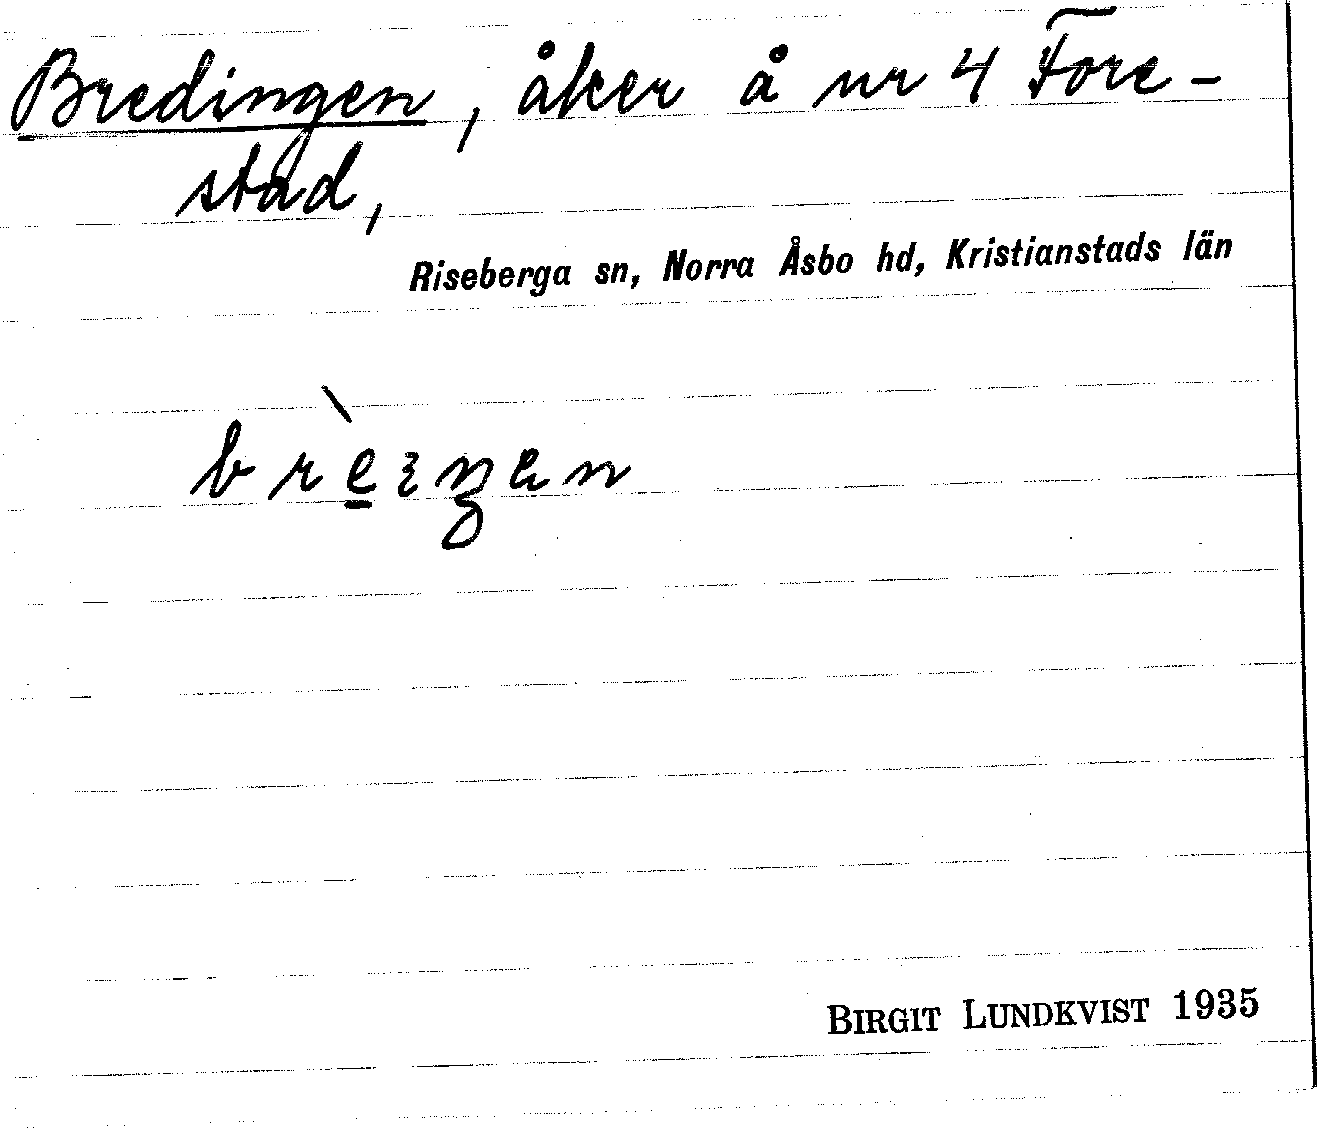 Bredingen, åker å nr 4 Fore-
stad,
Riseberga sn, Norra Åsbo hd, Kristianstads län
BIRGIT LUNDKVIST 1935